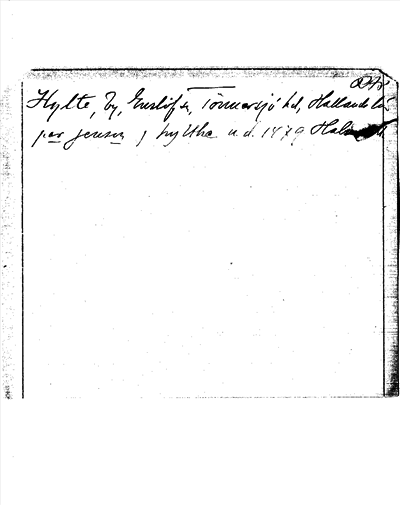 Hylte, by, Enslöfs sn, Tönnersjö hd, Hallands län
per jenson j hyltha u.d. 1479